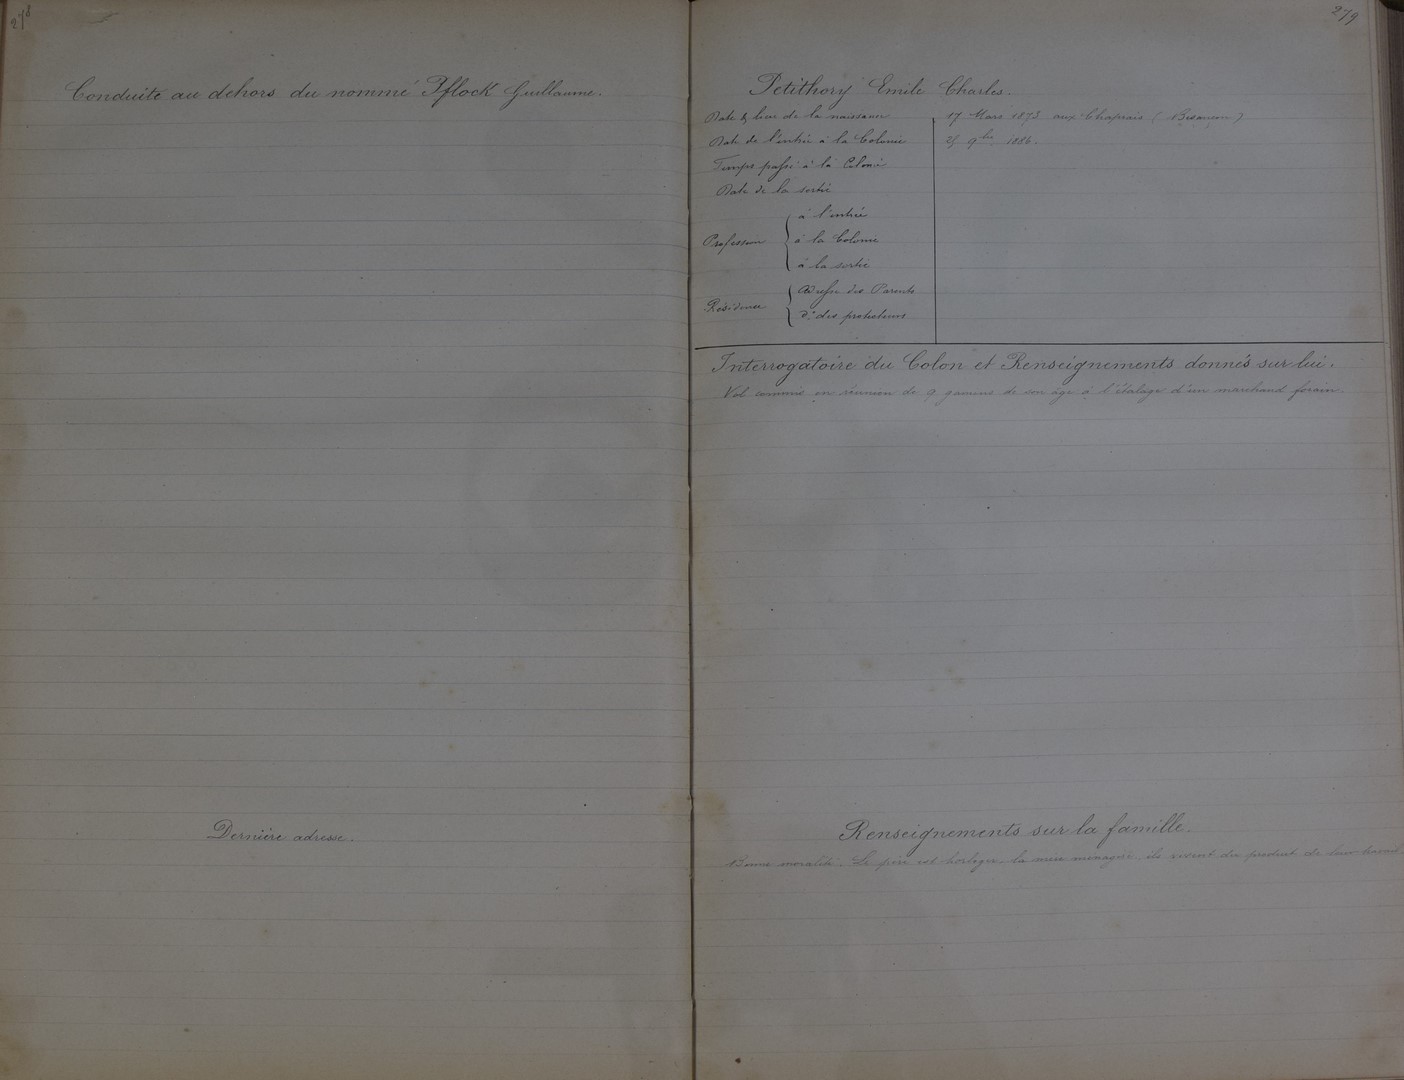 278
Conduite au dehors du nommé Pflock Guillaume.
Dernière adresse.
279
Petithory Emile Charles.
Date & lieu de la naissance 17 Mars 1873 aux Chaprais (Besançon)
Date de l'entrée à la Colonie 25 9bre 1886.
Temps passé à la Colonie
Date de la sortie
Profession
à l'entrée
à la Colonie
à la sortie
Résidence
Adresse des Parents
do des protecteurs
Interrogatoire du Colon et Renseignements donnés sur lui.
Vol commis en réunion de 9 gamins de son âge à l'étalage d'un marchand forain.
Renseignements sur la famille.
Bonne moralité. Le père est horloger, la mère ménagère, ils vivent du produit de leur travail